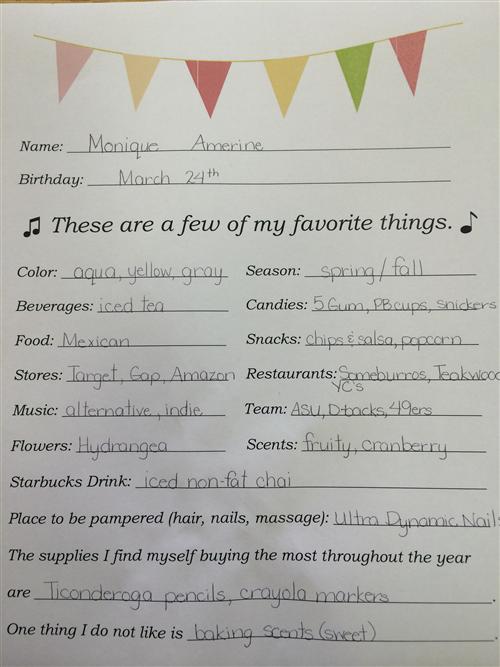 Name: Monique Amerine
Birthday: March 24th
These are a few of my favorite things.
Color: aqua, yellow, gray Season: spring/fall
Beverages: iced tea Candies: 5 Gum, PB cups, snickers
Food: Mexican Snacks: chips & salsa, popcorn
Stores: Target, Gap, Amazon Restaurants: Someburros, Teakwood
YC's
Music: alternative, indie Team: ASU, D-backs, 49ers
Flowers: Hydrangea Scents: fruity, cranberry
Starbucks Drink: iced non-fat chai
Place to be pampered (hair, nails, massage): Ultra Dynamic Nails
The supplies I find myself buying the most throughout the year
are Ticonderoga pencils, crayola markers.
One thing I do not like is baking scents (sweet).